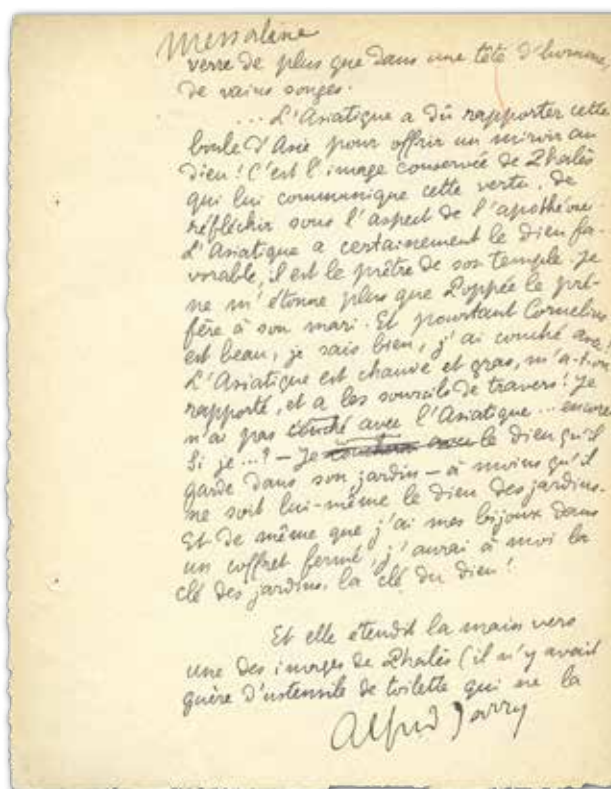 Messaline
verre de plus que dans une tête d'homme,
de vains songes.
... L'Asiatique a dû rapporter cette
boule d'Asie pour offrir un miroir au
Dieu ! C'est l'image conservée de Phalès
qui lui communique cette vertu, de
réfléchir sous l'aspect de l'apothéose.
L'Asiatique a certainement le dieu fa-
vorable, il est le prêtre de son temple. Je
ne m'étonne plus que Poppée le pré-
fère à son mari. Et pourtant Cornelius
est beau, je sais bien, j'ai couché avec !
L'Asiatique est chauve et gras, m'a-t-on
rapporté, et a les sourcils de travers ! Je
n'ai pas couché avec l'Asiatique... encore
Si je...? — Je coucherai avec le dieu qu'il
garde dans son jardin — à moins qu'il
ne soit lui-même le dieu des jardins.
Et de même que j'ai mes bijoux dans
un coffret fermé, j'aurai à moi la
clé des jardins, la clé du dieu !
Et elle étendit la main vers
une des images de Phalès (il n'y avait
guère d'ustensile de toilette qui ne la
Alfred Jarry